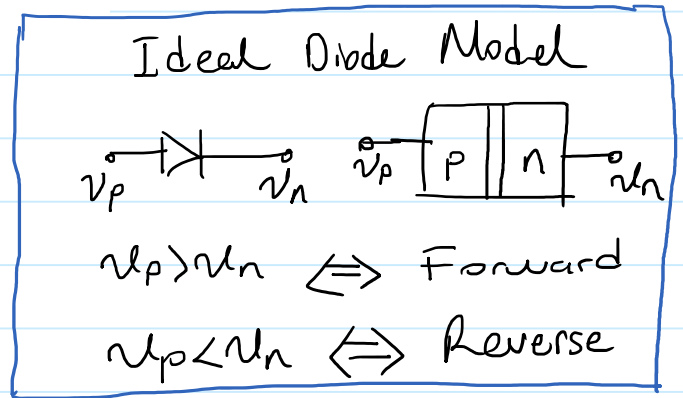 Ideal Diode Model
v_p v_n v_p p n v_n
v_p > v_n ⇔ Forward
v_p < v_n ⇔ Reverse